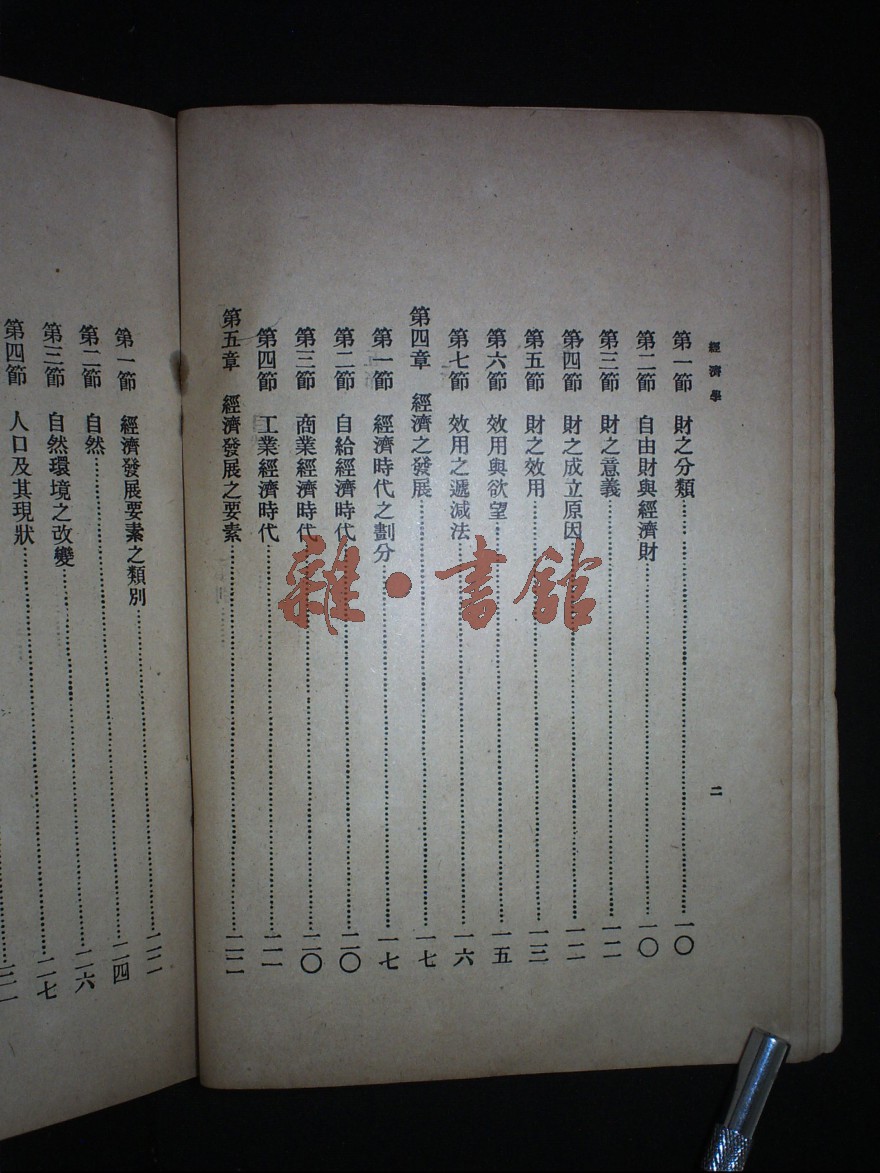 經濟學
二
第一節 財之分類……一〇
第二節 自由財與經濟財……一〇
第三節 財之意義……一二
第四節 財之成立原因……一二
第五節 財之效用……一三
第六節 效用與欲望……一五
第七節 效用之遞減法……一六
第四章 經濟之發展……一七
第一節 經濟時代之劃分……一七
第二節 自給經濟時代……二〇
第三節 商業經濟時代……二〇
第四節 工業經濟時代……二一
第五章 經濟發展之要素……二二
第一節 經濟發展要素之類別……二二
第二節 自然……二四
第三節 自然環境之改變……二六
第四節 人口及其現狀……二七
雜·書館